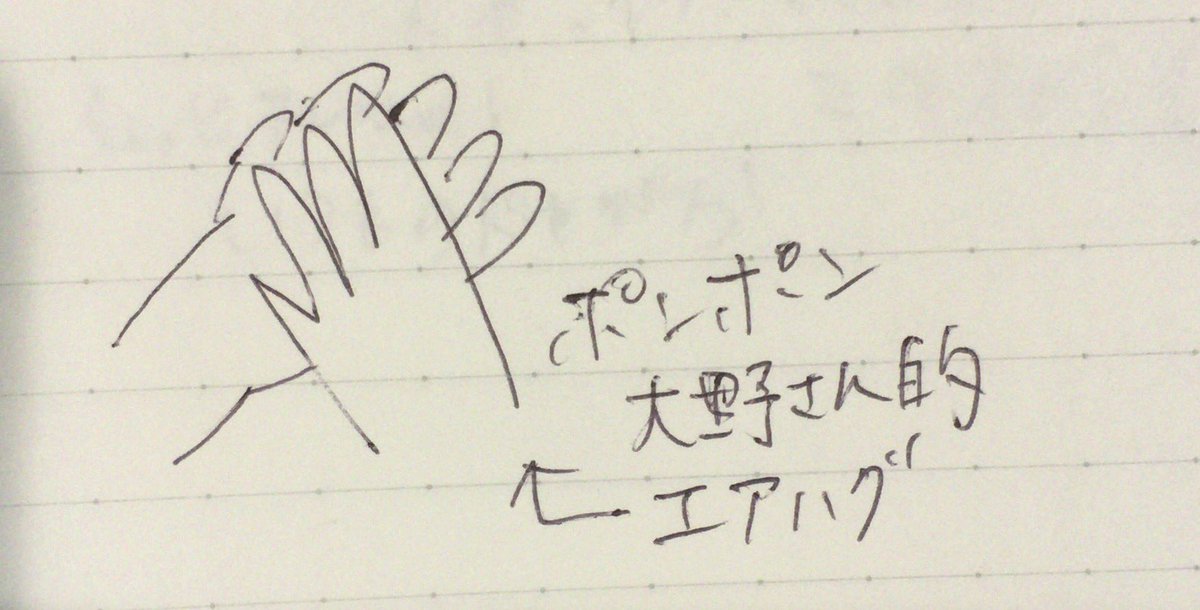 ポンポン
大野さん的
←エアハグ